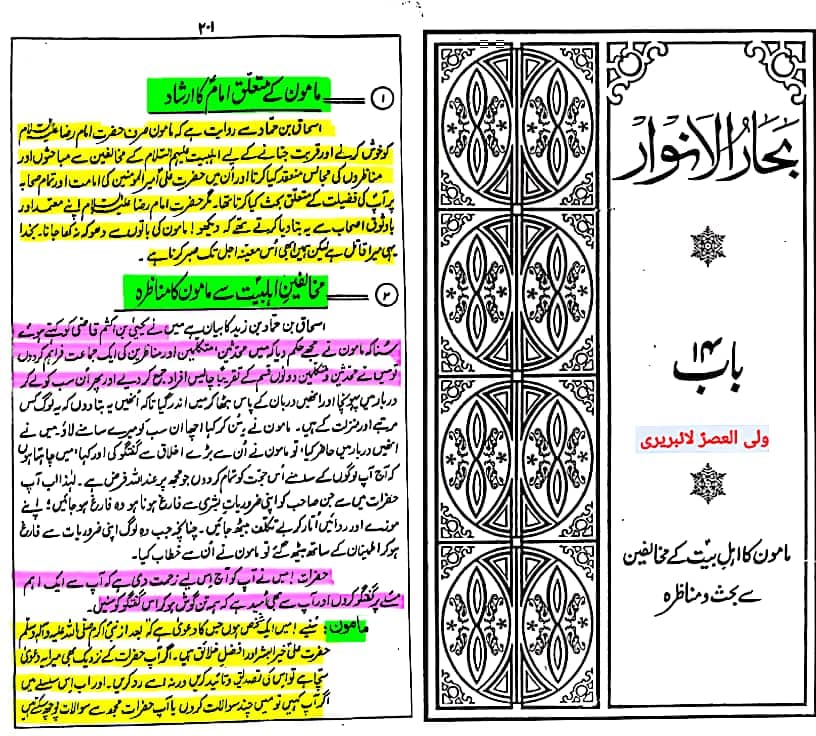 بحارُ الانوار
باب ۱۴
ولی العصرؑ لائبریری
مامون کا اہلِ بیتؑ کے مخالفین
سے بحث و مناظرہ
۲۰۱
۱ — مامون کے متعلّق امامؑ کا ارشاد
اسحاق بن حماد سے روایت ہے کہ مامون صرف حضرت امام رضا علیہ السلام
کو خوش کرنے اور قربت جتانے کے لیے اہلبیت علیہم السلام کے مخالفین سے مباحثوں اور
مناظروں کی مجالس منعقد کیا کرتا اور اُن میں حضرت علی امیر المومنین کی امامت اور تمام صحابہ
پر آپؑ کی فضیلت کے متعلق بحث کیا کرتا تھا۔ مگر حضرت امام رضا علیہ السلام اپنے معتمد اور
باوثوق اصحاب سے یہ بتا دیا کرتے تھے کہ دیکھو! مامون کی باتوں سے دھوکہ نہ کھا جانا۔ بخدا
یہی میرا قاتل ہے لیکن ہمیں ابھی اُس معینہ اجل تک صبر کرنا ہے۔
۲ — مخالفینِ اہلبیتؑ سے مامون کا مناظرہ
اسحاق بن حماد بن زید کا بیان ہے میں نے یحییٰ بن اکثم قاضی کو کہتے ہوئے
سُنا کہ مامون نے مجھے حکم دیا کہ میں محدّثین، متکلمین اور مناظرین کی ایک جماعت فراہم کردوں
تو میں نے محدّثین و متکلمین دونوں قسم کے تقریباً چالیس افراد جمع کر دیے اور پھر اُن سب کو لے کر
دربار میں پہونچا اور انھیں دربان کے پاس بٹھا کر میں اندر گیا تاکہ اُنھیں یہ بتا دوں کہ یہ لوگ کس
مرتبے اور منزلت کے ہیں۔ مامون نے یہ سن کر کہا اچھا ان سب کو میرے سامنے لاؤ۔ میں نے
انھیں دربار میں حاضر کیا، تو مامون نے اُن سے بڑے اخلاق سے گفتگو کی اور کہا، میں چاہتا ہوں
کہ آج آپ لوگوں کے سامنے اُس حجّت کو تمام کردوں جو مجھ پر عند اللہ فرض ہے۔ لہٰذا اب آپ
حضرات میں سے جن صاحب کو اپنی ضروریاتِ بشری سے فارغ ہونا ہو وہ فارغ ہو جائیں؛ اپنے
موزے اور ردائیں اُتار کر بے تکلف بیٹھ جائیں۔ چنانچہ جب وہ لوگ اپنی ضروریات سے فارغ
ہو کر اطمینان کے ساتھ بیٹھ گئے تو مامون نے اُن سے خطاب کیا۔
حضرات! میں نے آپ کو آج اس لیے زحمت دی ہے کہ آپ سے ایک اہم
مسئلے پر گفتگو کروں اور آپ سے بھی اُمید ہے کہ ہمہ تن گوش ہو کر اس گفتگو کو سنیں گے۔
مامون: سُنیے! میں ایک شخص ہوں جس کا دعویٰ ہے کہ بعد از نبی اکرم صلی اللہ علیہ و آلہ وسلم
حضرت علیؑ خیر البشر اور افضلِ خلائق ہیں۔ اگر آپ حضرات کے نزدیک بھی میرا یہ دعویٰ
سچا ہے تو اس کی تصدیق و تائید کریں ورنہ اسے رد کریں۔ اور اب اس سلسلے میں
اگر آپ کہیں تو میں چند سوالات کروں یا آپ حضرات مجھ سے سوالات پوچھ سکتے ہیں